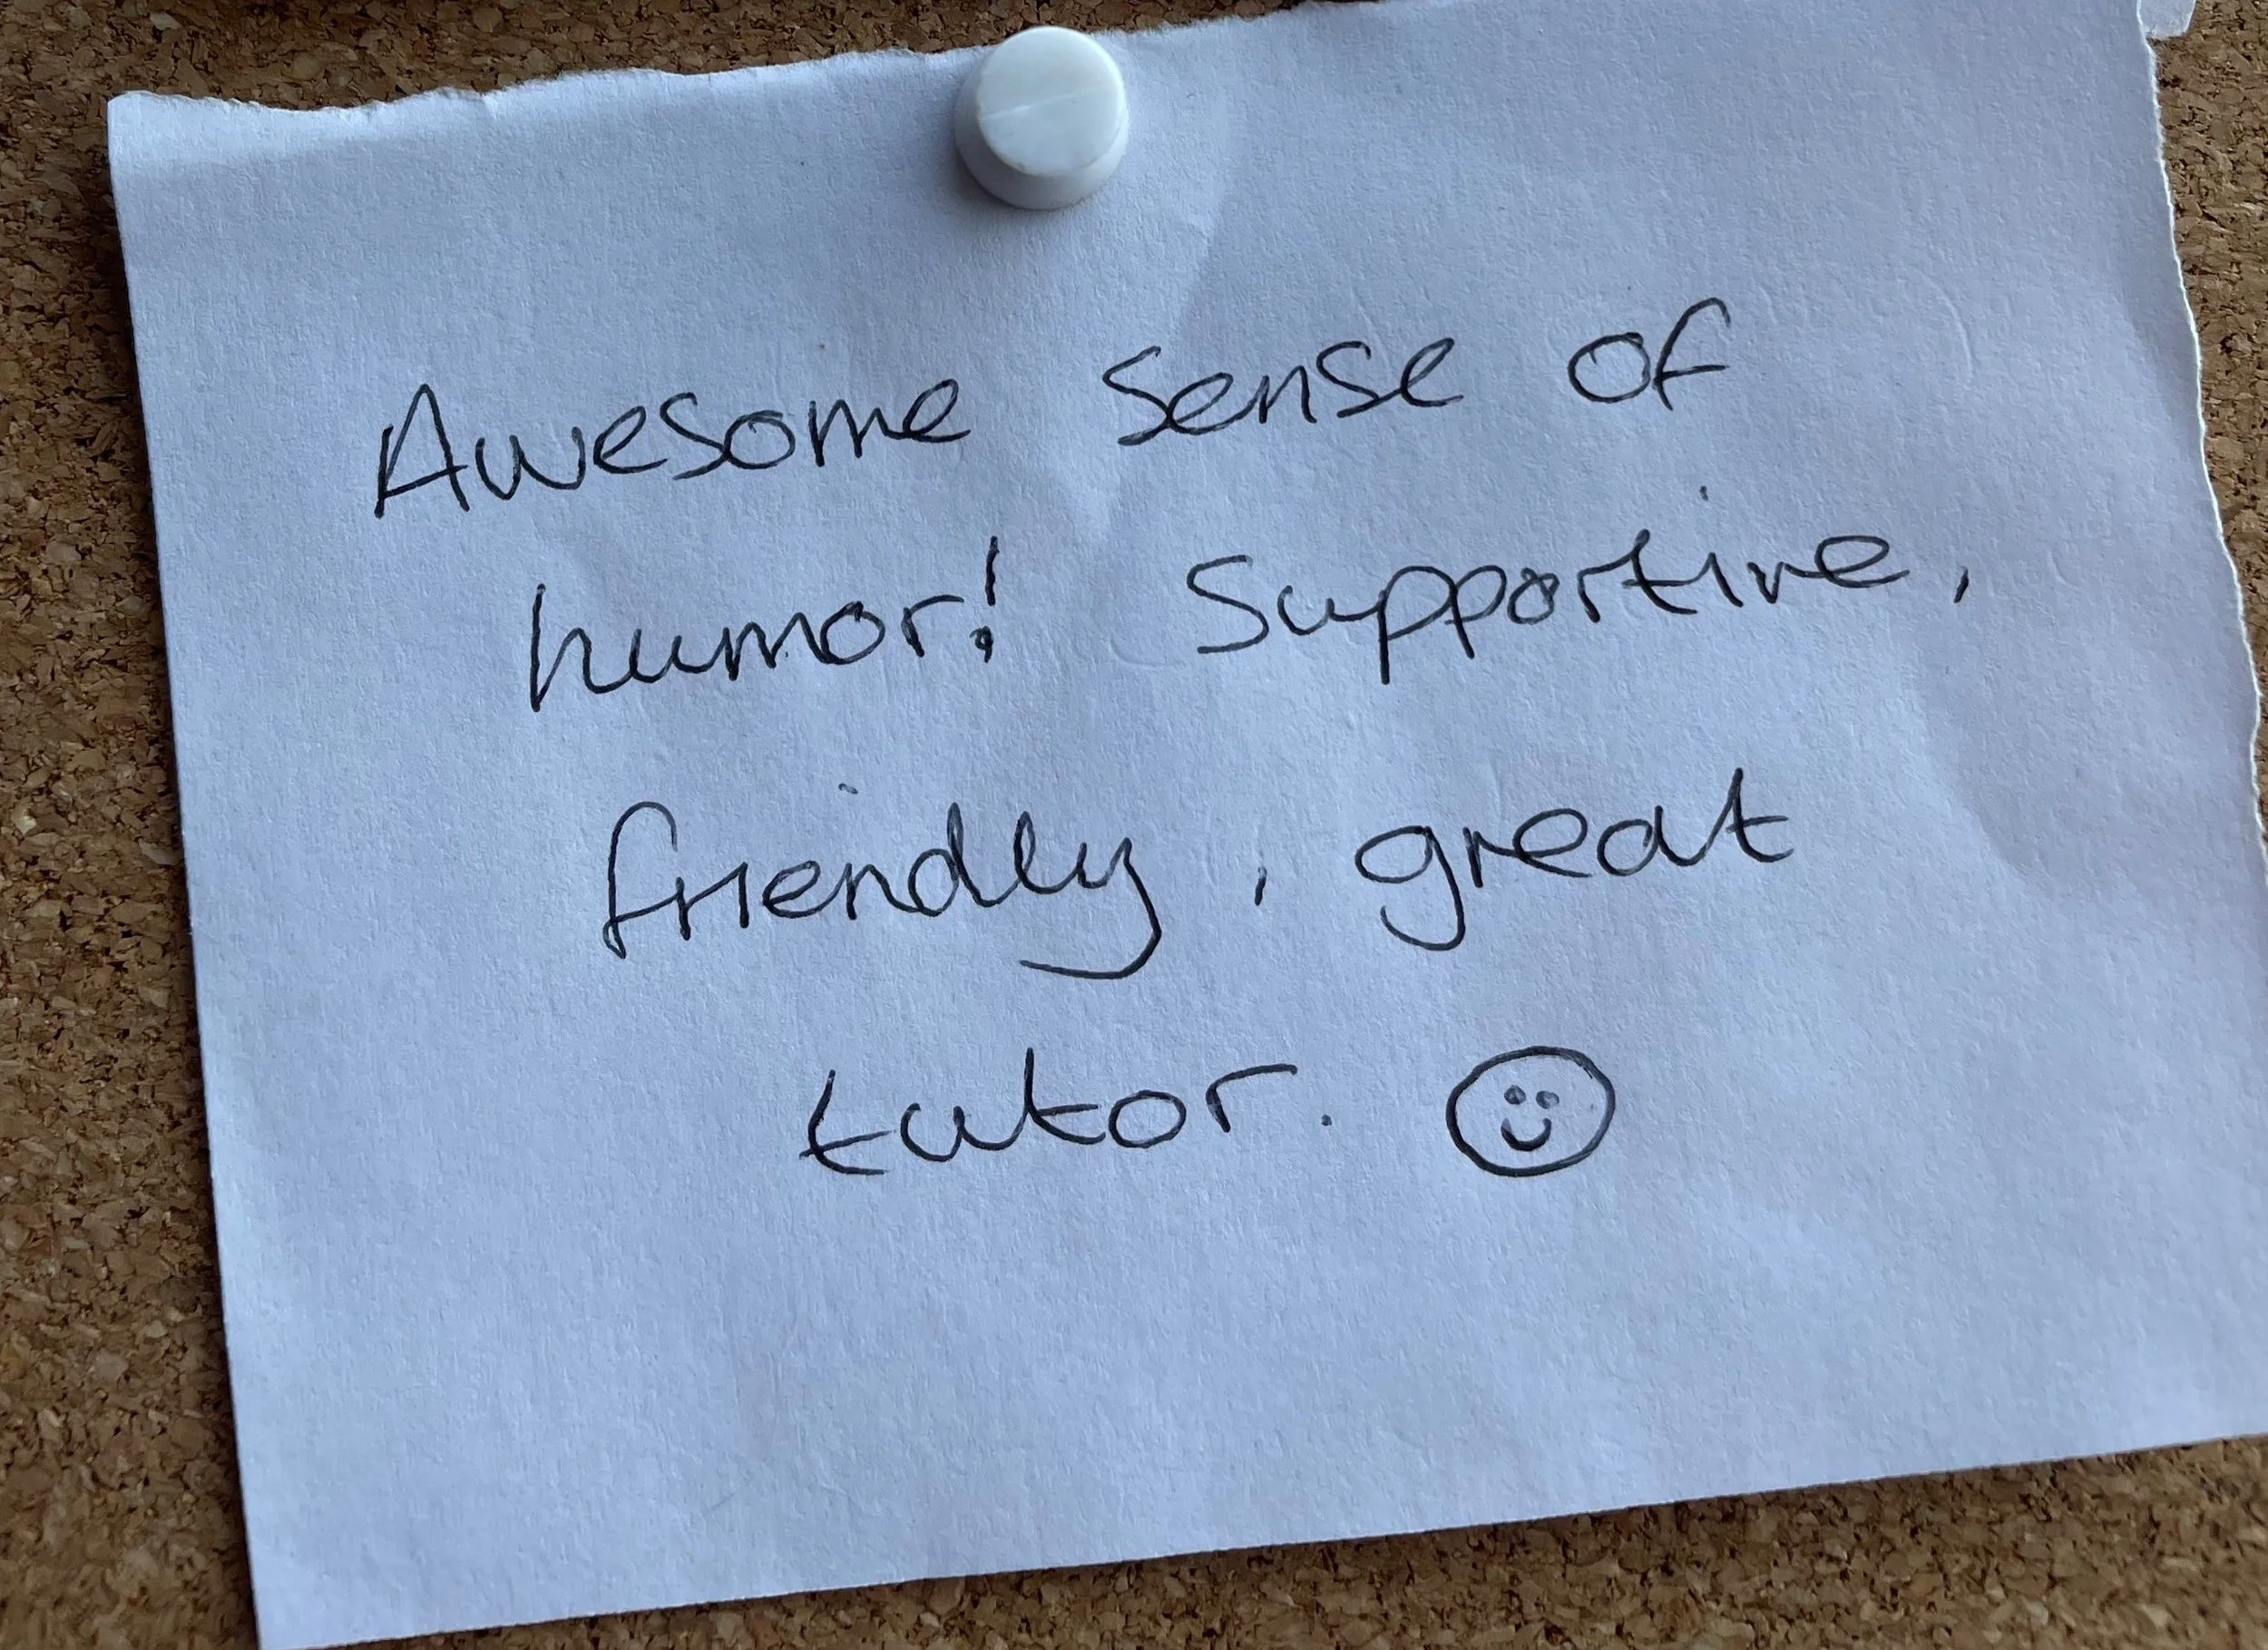 Awesome sense of
humor! Supportive,
friendly, great
tutor. ☺